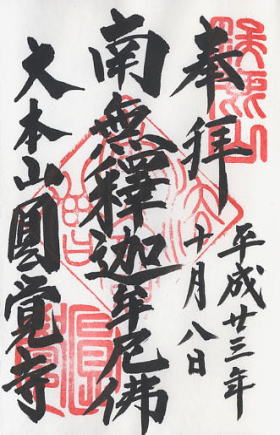 奉拜
平成廿三年
十月八日
南無釋迦牟尼佛
大本山圓覺寺